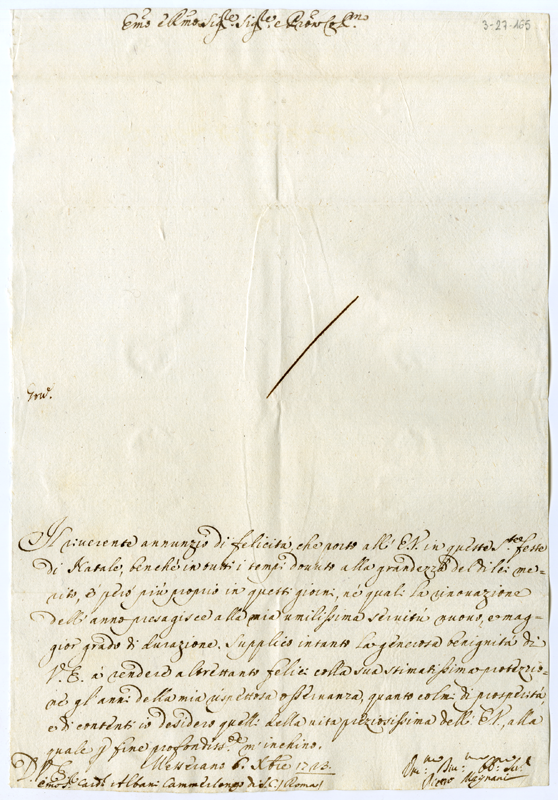 3-27-165
Emo e Rmo Sig.re Sig.re e Pron Col.mo
Il riverente annunzio di felicità che porto all' E.V. in queste S.te feste
di Natale, benchè in tutti i tempi dovuto alla grandezza del di lei me-
rito, è però più proprio in questi giorni, nè quali la rinovazione
dell' anno presagisce alla mia umilissima servitù nuovo, e mag-
gior grado di durazione. Supplico intanto la generosa benignità di
V. E. à rendere altrettanto felici colla sua stimatissima protezzio-
ne gl' anni della mia rispettosa osservanza, quanto colmi di prosperità
e di contenti io desidero quelli della vita preziosissima dell' E.V., alla
quale p fine profondite m' inchino.
D. V. E. 6 Xbre 1743.
Emo Sig. Card. Albani Cammerlengo di S.C. / Roma /
Pietro